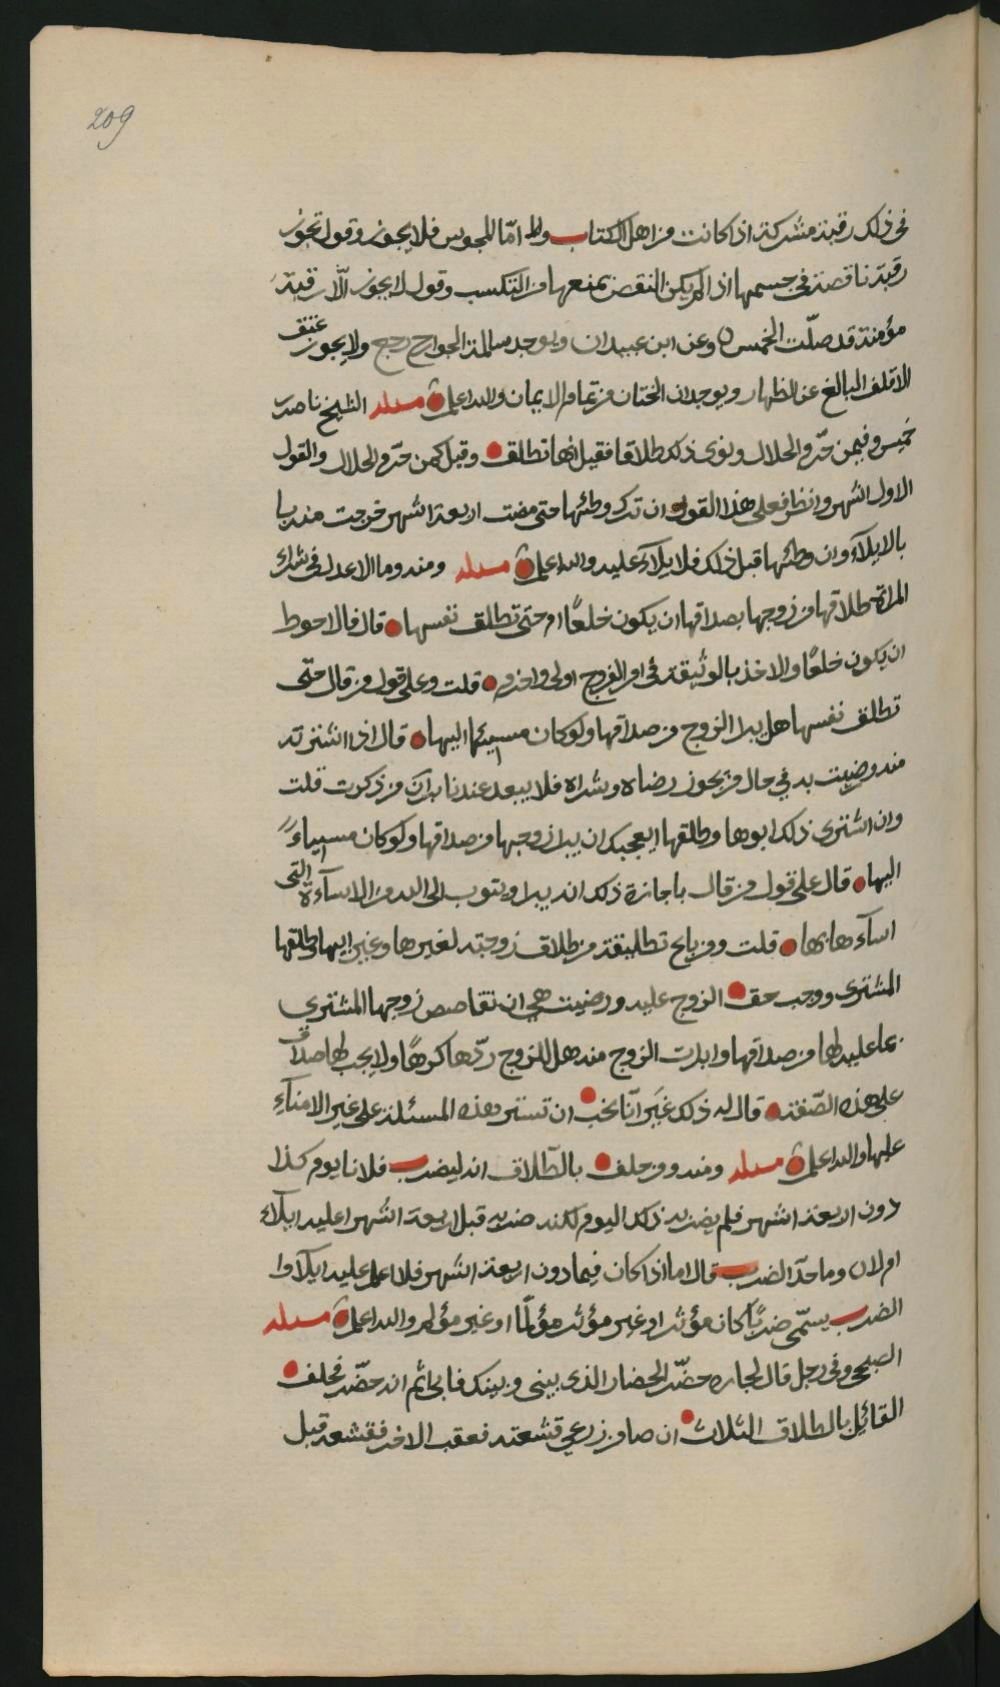 209
في ذلك رقبة مشركة اذا كانت من اهل الكتاب واما المجوس فلا يجوز وقول تجوز
رقبة ناقصة في جسمها اذا لم يكن النقص يمنعها من التكسب وقول لا يجوز الّا رقبة
مؤمنة قد صلّت الخمس وعن ابن عبيدان ويوجد سالمة الجوارح رجع ولا يجوز عتق
الاقلف البالغ عن الظهار ويوجد ان الختان من تمام الايمان والله اعلم مسئلة الشيخ ناصر
خميس وفيمن حرّم الحلال ونوى ذلك طلاقا فقيل انها تطلق وقيل كمن حرّم الحلال والقول
الاول اشهر وانظر فعلى هذا القول ان ترك وطئها حتى مضت اربعة اشهر خرجت منه با
بالايلاء وان وطئها قبل ذلك فلا ايلاء عليه والله اعلم مسئلة ومنه وما الاعدل في شراء
المراة طلاقها من زوجها بصداقها ان يكون خلعًا ام حتى تطلق نفسها قال فالاحوط
ان يكون خلعًا والاخذ بالوثيقة في امر الفروج اولى واحزم قلت وعلى قول من قال حتّى
تطلق نفسها هل يبرا الزوج من صداقها ولو كان مسيئا اليها قال اذا اشترته
منه ورضيت به في حال من يجوز رضاه وشراه فلا يبعد عندنا براآن من ذكرت قلت
وان اشترى ذلك ابوها وطلقها ايعجبك ان يبرا زوجها من صداقها ولو كان مسيئاءً
اليها قال على قول من قال باجازة ذلك انه يبرا ويتوب الى الله من الاساءة التى
اساءها بها قلت ومن باع تطليقة من طلاق زوجته لغيرها وغير ابيها وطلقها
المشترى ووجب حق الزوج عليه ورضيت هي ان تقاصص زوجها المشتري
بما عليه لها من صداقها وابلت الزوج منه هل للزوج ردّها كرهًا ولا يجب لها صداق
على هذه الصّفة قال له ذلك غير انّا نحب ان تستر هذه المسئلة على غير الامناء
عليها والله اعلم مسئلة ومنه ومن حلف بالطّلاق انه ليضرب فلانا يوم كذا
دون اربعة اشهر فلم يضربه ذلك اليوم لكنه ضربه قبل اربعة اشهر اعليه ايلاء
ام لا وما حدّ الضرب قال اما اذا كان فيما دون اربعة اشهر فلا اعلم عليه ايلاء وا
الضرب يسمّى ضربًا كان مؤثرا وغير مؤثر مؤلمًا او غير مؤلم والله اعلم مسئلة
الصبحي وفي رجل قال لجاره حضّر الحضار الذى بيني وبينك فابى ثم انه حضّر فحلف
القائل بالطلاق الثلاث ان صار زرعي قشعته فعقب الاخر فقشعه قبل